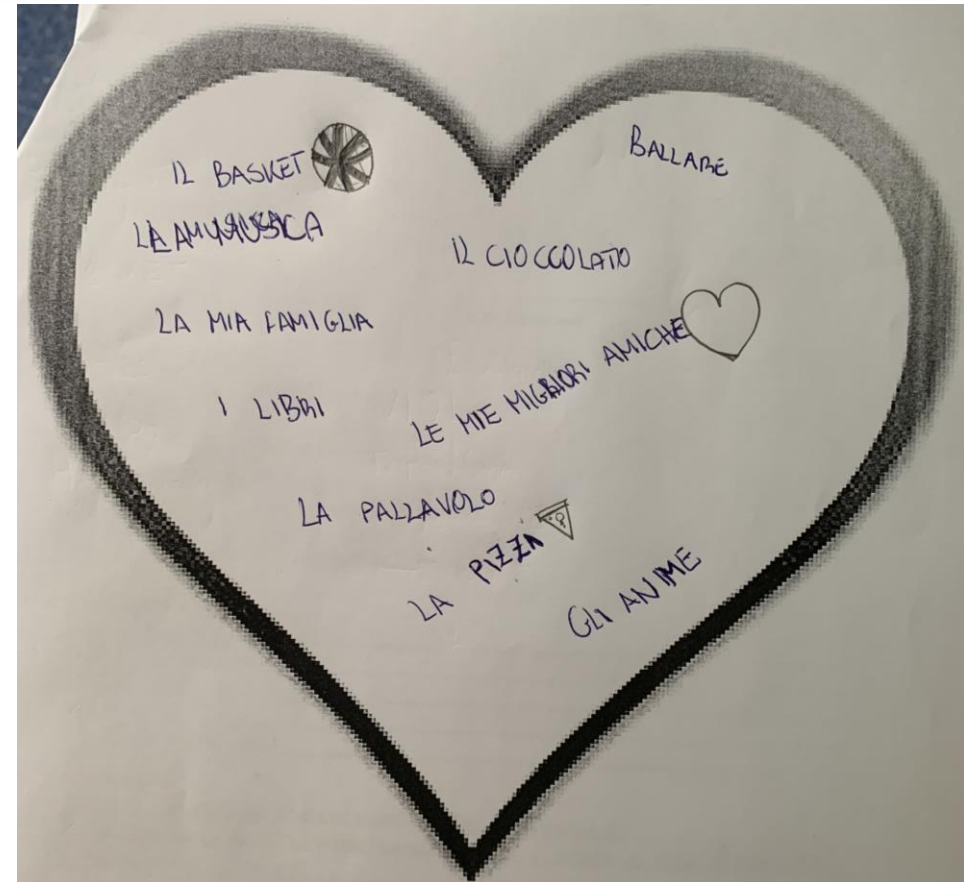 IL BASKET
BALLARE
LA MUSICA
IL CIOCCOLATO
LA MIA FAMIGLIA
I LIBRI
LE MIE MIGLIORI AMICHE
LA PALLAVOLO
LA PIZZA
GLI ANIME